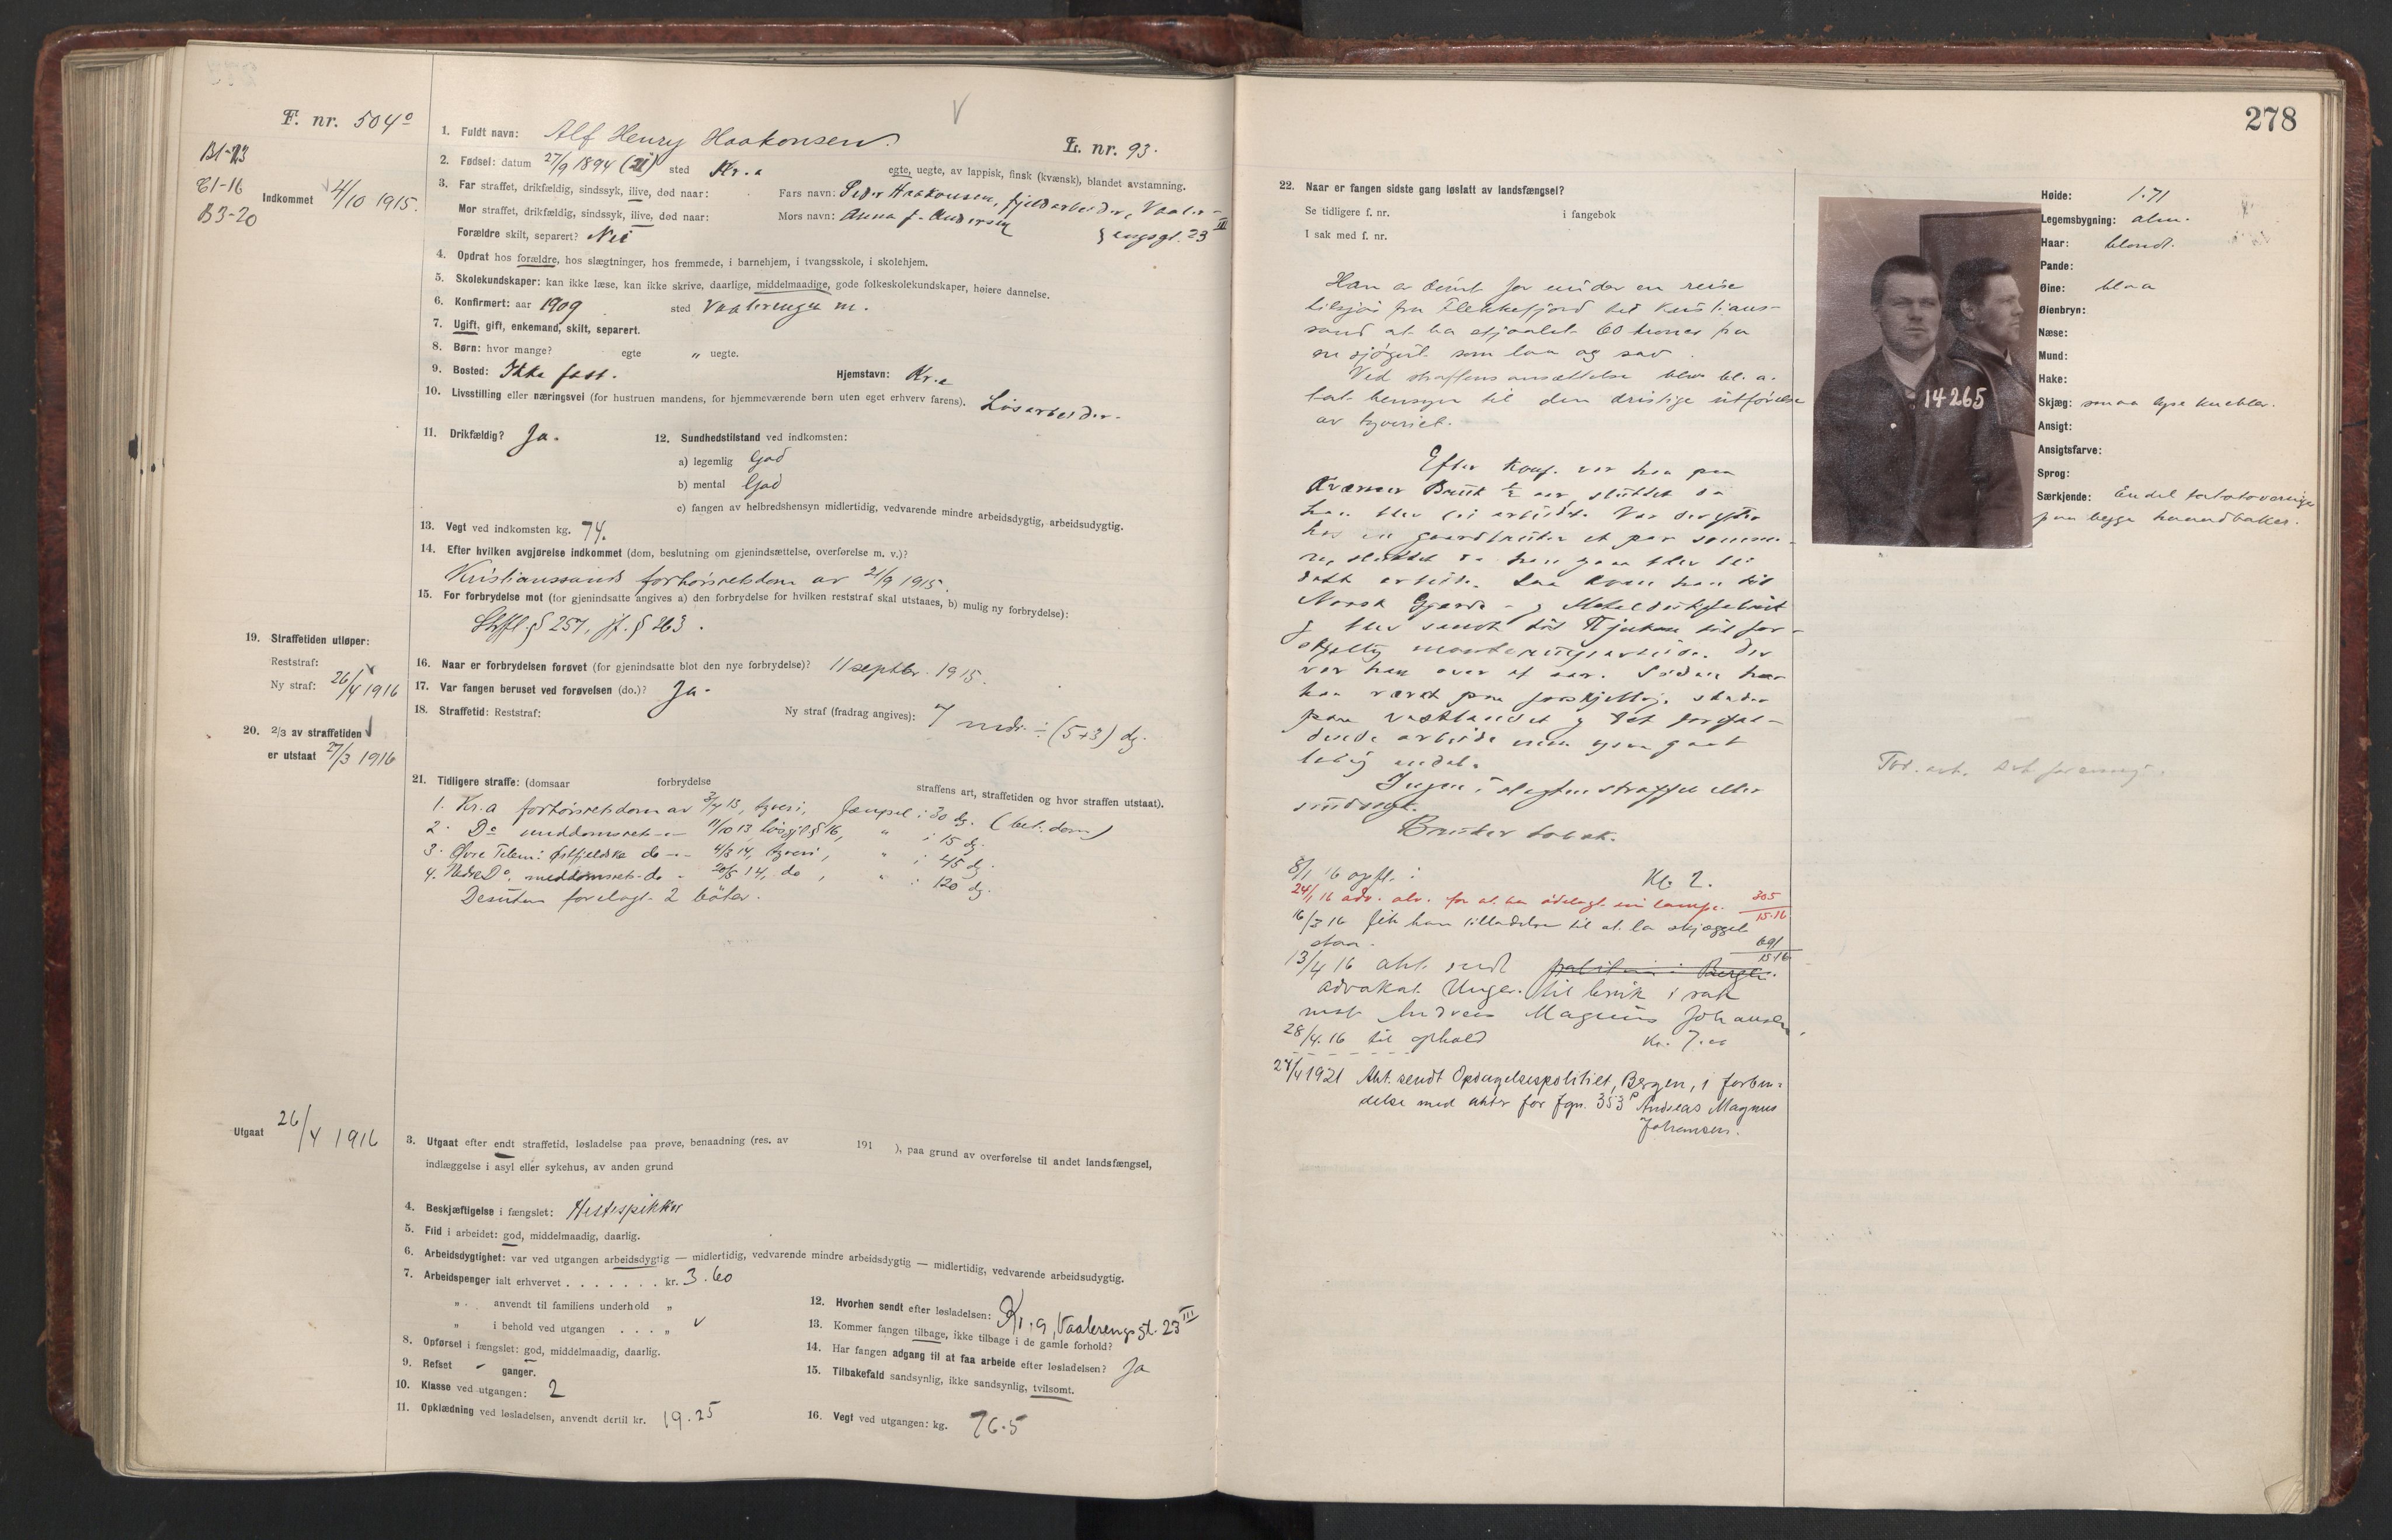 F. nr. 504º
B1-23
C1-16
B3-20
Indkommet 4/10 1915.
1. Fuldt navn: Alf Henry Haakonsen.
L. nr. 93.
2. Fødsel: datum 27/9 1894 (21) sted Kr.a egte, uegte, av lappisk, finsk (kvænsk), blandet avstamning.
3. Far straffet, drikfældig, sindssyk, ilive, død naar: Fars navn: Peder Haakonsen, fjeldarbeider, Vaaler-
Mor straffet, drikfældig, sindssyk, ilive, død naar: Mors navn: Anna f. Andersen } engsgt. 23 III
Forældre skilt, separert? Nei
4. Opdrat hos forældre, hos slægtninger, hos fremmede, i barnehjem, i tvangsskole, i skolehjem.
5. Skolekundskaper: kan ikke læse, kan ikke skrive, daarlige, middelmaadige, gode folkeskolekundskaper, høiere dannelse.
6. Konfirmert: aar 1909 sted Vaalerengen m.
7. Ugift, gift, enkemand, skilt, separert.
8. Børn: hvor mange? egte " uegte.
9. Bosted: Ikke fast. Hjemstavn: Kr.a
10. Livsstilling eller næringsvei (for hustruen mandens, for hjemmeværende børn uten eget erhverv farens). Løsarbeider.
11. Drikfældig? Ja.
12. Sundhedstilstand ved indkomsten:
a) legemlig God
b) mental God
c) fangen av helbredshensyn midlertidig, vedvarende mindre arbeidsdygtig, arbeidsudygtig.
13. Vegt ved indkomsten kg. 74.
14. Efter hvilken avgjørelse indkommet (dom, beslutning om gjenindsættelse, overførelse m. v.)?
Kristianssands forhørsretsdom av 21/9 1915.
15. For forbrydelse mot (for gjenindsatte angives a) den forbrydelse for hvilken reststraf skal utstaaes, b) mulig ny forbrydelse):
Strfl. § 257, jf. § 263.
19. Straffetiden utløper:
Reststraf:
Ny straf: 26/4 1916
16. Naar er forbrydelsen forøvet (for gjenindsatte blot den nye forbrydelse)? 11 septbr. 1915.
17. Var fangen beruset ved forøvelsen (do.)? Ja.
18. Straffetid: Reststraf: Ny straf (fradrag angives): 7 mdr. ÷ (5+3) dg.
20. 2/3 av straffetiden
er utstaat 27/3 1916
21. Tidligere straffe: (domsaar forbrydelse straffens art, straffetiden og hvor straffen utstaat).
1. Kr.a forhørsretsdom av 3/4 13, tyveri, fængsel i 30 dg. (bet. dom)
2. Do meddomsret — 11/10 13 løsgjl. § 16, " i 15 dg.
3. Øvre Telem: Østfjeldske do — 4/3 14, tyveri, " i 45 dg.
4. Nedre Do. meddomsrets do - 20/5 14, do, " i 120 dg.
Desuten forelagt 2 bøter.
Utgaat 26/4 1916
3. Utgaat efter endt straffetid, løsladelse paa prøve, benaadning (res. av 191 ), paa grund av overførelse til andet landsfængsel,
indlæggelse i asyl eller sykehus, av anden grund
4. Beskjæftigelse i fængslet: Hestespikker
5. Flid i arbeidet: god, middelmaadig, daarlig.
6. Arbeidsdygtighet: var ved utgangen arbeidsdygtig — midlertidig, vedvarende mindre arbeidsdygtig — midlertidig, vedvarende arbeidsudygtig.
7. Arbeidspenger ialt erhvervet . . . . . . . kr. 3.60
" anvendt til familiens underhold "
" i behold ved utgangen . . . "
8. Opførsel i fængslet: god, middelmaadig, daarlig.
9. Refset - ganger.
10. Klasse ved utgangen: 2
11. Opklædning ved løsladelsen, anvendt dertil kr. 19.25
12. Hvorhen sendt efter løsladelsen: Kr.a, Vaalerengsgt. 23 III
13. Kommer fangen tilbage, ikke tilbage i de gamle forhold?
14. Har fangen adgang til at faa arbeide efter løsladelsen? Ja
15. Tilbakefald sandsynlig, ikke sandsynlig, tvilsomt.
16. Vegt ved utgangen: kg. 76.5
278
22. Naar er fangen sidste gang løslatt av landsfængsel?
Se tidligere f. nr. i fangebok
I sak med f. nr.
Han er dømt for under en reise
tilsjøs fra Flekkefjord til Kristians-
sand at ha stjaalet 60 kroner fra
en sjøgut som laa og sov.
Ved straffens ansættelse blev bl. a.
tat hensyn til den dristige utførelse
av tyveriet.
Efter konf. var han paa
Kværner Bruk ½ aar, sluttet da
han blev lei arbeidet. Var derefter
hos en gaardbruker et par somme-
re, sluttet da han ogsaa blev lei
dette arbeide. Saa kom han til
Norsk Gjerde- og Metaldukfabrik
og blev sendt til Rjukan til for-
skjellig monteringsarbeide. Der
var han over et aar. Siden har
han været paa forskjellige steder
paa vestlandet og det forefal-
dende arbeide men ogsaa gaat
ledig endel.
Ingen i slegten straffet eller
sindssyk.
Bruker tobak.
8/1 16 opfl. i Kl. 2.
24/1 16 adv. alv. for at ha ødelagt en lampe. 305/15-16
16/3 16 fik han tilladelse til at la skjægget
staa. 691/15-16
13/4 16 akt. sendt politiet i Bergen.
advokat Unger. til bruk i sak
mot Andreas Magnus Johansen.
28/4.16 til ophold Kr. 7.00
27/4 1921 Akt. sendt Opdagelsespolitiet, Bergen, i forbin-
delse med akter for fgn. 353 P Andreas Magnus
Johansen.
14265
Høide: 1.71
Legemsbygning: alm.
Haar: blond.
Pande:
Øine: blaa
Øienbryn:
Næse:
Mund:
Hake:
Skjæg: smaa lyse knebler.
Ansigt:
Ansigtsfarve:
Sprog:
Særkjende: Endel tatoveringer
paa begge haandbaker.